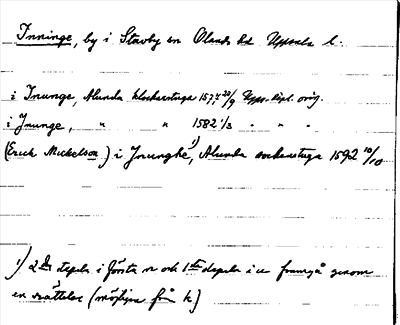 Inninge, by i Stavby sn Olands hd Uppsala l.
i Inunge, Alunda klockarstuga 1574 20/9 Upps. dipl. orig.
i Inunge, " " 1582 1/3 " " "
(Erick Mickelson) i Jnunghe 1), Alunda sockenstuga 1592 10/10
1) 2 staplar i första n och 1sta stapeln i u framgå genom
en rättelse (möjligen från k)